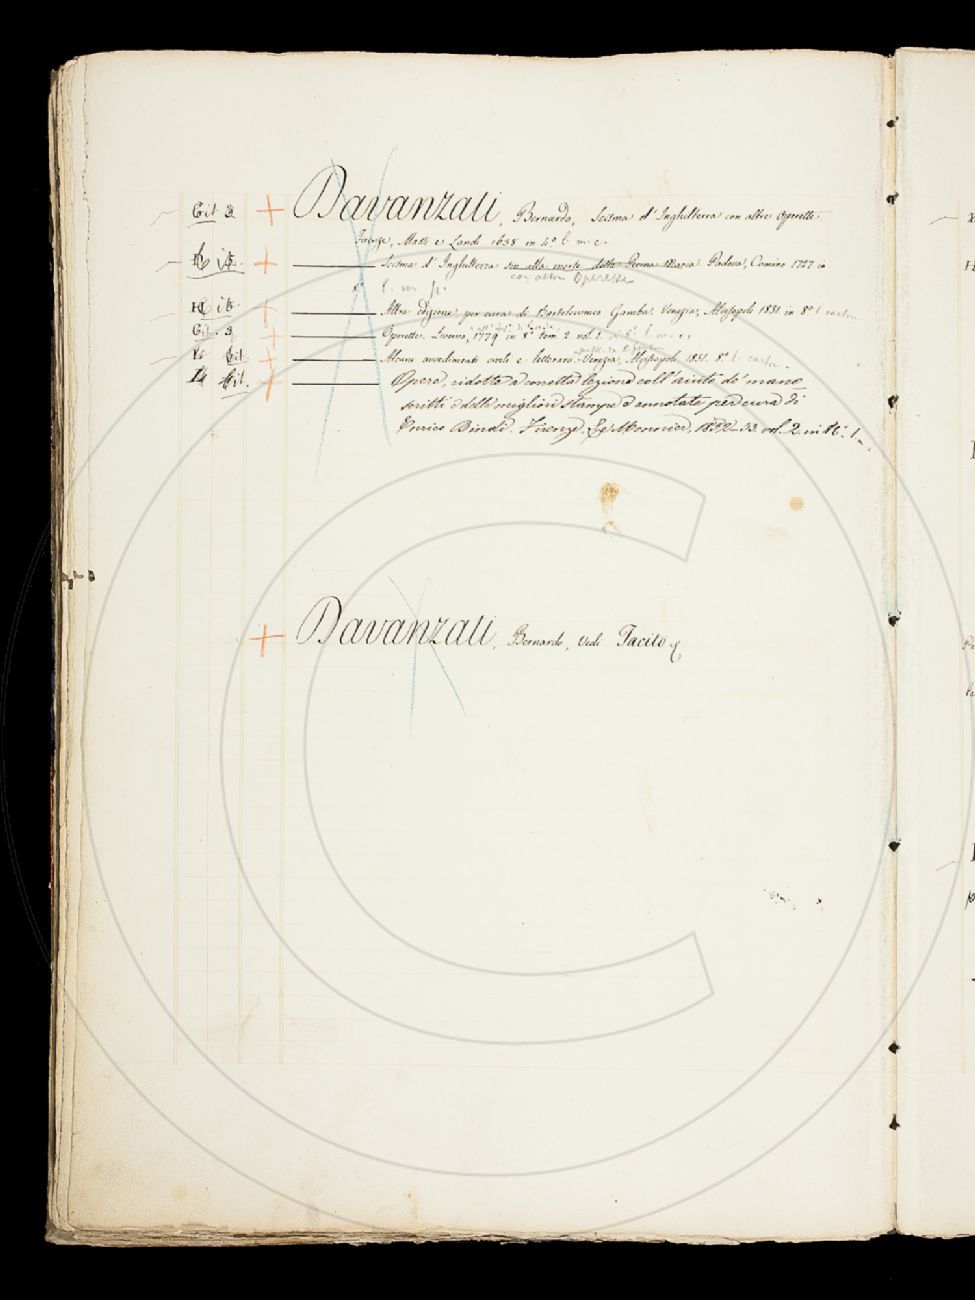 Cit 3 Davanzati, Bernardo, Scisma d'Inghilterra con altre Operette
Firenze, Massi e Landi 1638 in 4°
Scisma d'Inghilterra sin alla morte della Reina Maria. Padova, Comino 1727 in
con altre Operette
8°
Altra edizione, per cura di Bartolommeo Gamba. Venezia, Alvisopoli 1831 in 8°
Cit. 3 Operette. Livorno, 1779 in 8° tom. 2. vol. 1.
Alcuni avvedimenti civili e letterarii. Venezia, Alvisopoli 1831. 8°
Cit. Opere, ridotte a corretta lezione coll'aiuto de' mano
scritti e delle migliori stampe e annotate per cura di
Enrico Bindi. Firenze, Le Monnier, 1852-53. vol. 2. in 16°.
Davanzati, Bernardo, Vedi Tacito